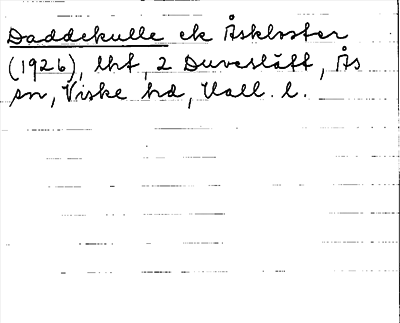 Daddekulle ek Åskloster
(1926), lht, 2 Duveslätt, Ås
sn, Viske hd, Hall. l.